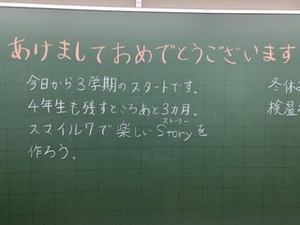 あけましておめでとうございます
今日から3学期のスタートです。
4年生も残すところあと3ヵ月。
スマイル7で楽しいStoryを
ストーリー
作ろう。
冬休み
検温